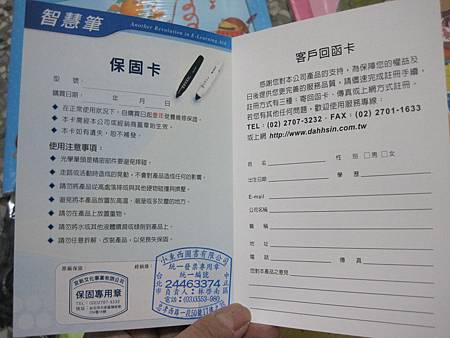 智慧筆
Another Revolution in E-Learning Aid
保固卡
型 號：
購買日期： 年 月 日
在正常使用狀況下，自購買日起壹年免費維修保證。
本卡需經本公司或經銷商蓋章始生效。
本卡如有遺失，恕不補發。
使用注意事項：
光學筆頭是精密部件要避免碰撞。
走路或活動時造成的晃動，不會對產品造成任何的影響。
請勿將產品從高處落摔或與其他硬物碰撞與擠壓。
避免將本產品放置於高溫，潮溼或多灰塵的地方。
請勿在產品上放置重物。
請勿將水或其他液體噴濺或傾倒到產品上。
請勿任意拆解、改裝產品，以免喪失保固。
原廠保固：
經銷商：
保固專用章
小東西圖書有限公司
統一發票專用章
統一編號
24463374
台北市
中正區
負責人：林啓南
客戶回函卡
感謝您對本公司產品的支持，為保障您的權益及
日後提供您更完善的服務品質，請儘速完成註冊手續，
註冊方式有三種：寄回函卡、傳真或上網方式註冊。
若您有其他任何問題，歡迎使用服務專線：
TEL：(02) 2707-3232 FAX：(02) 2701-1633
或上網 http://www.dahhsin.com.tw
姓 名： 性 別：□男 □女
出生日期： 學 歷：
E-mail：
公司名稱：
職 稱：
地 址：
電 話： 傳 真：
您對本產品之意見：